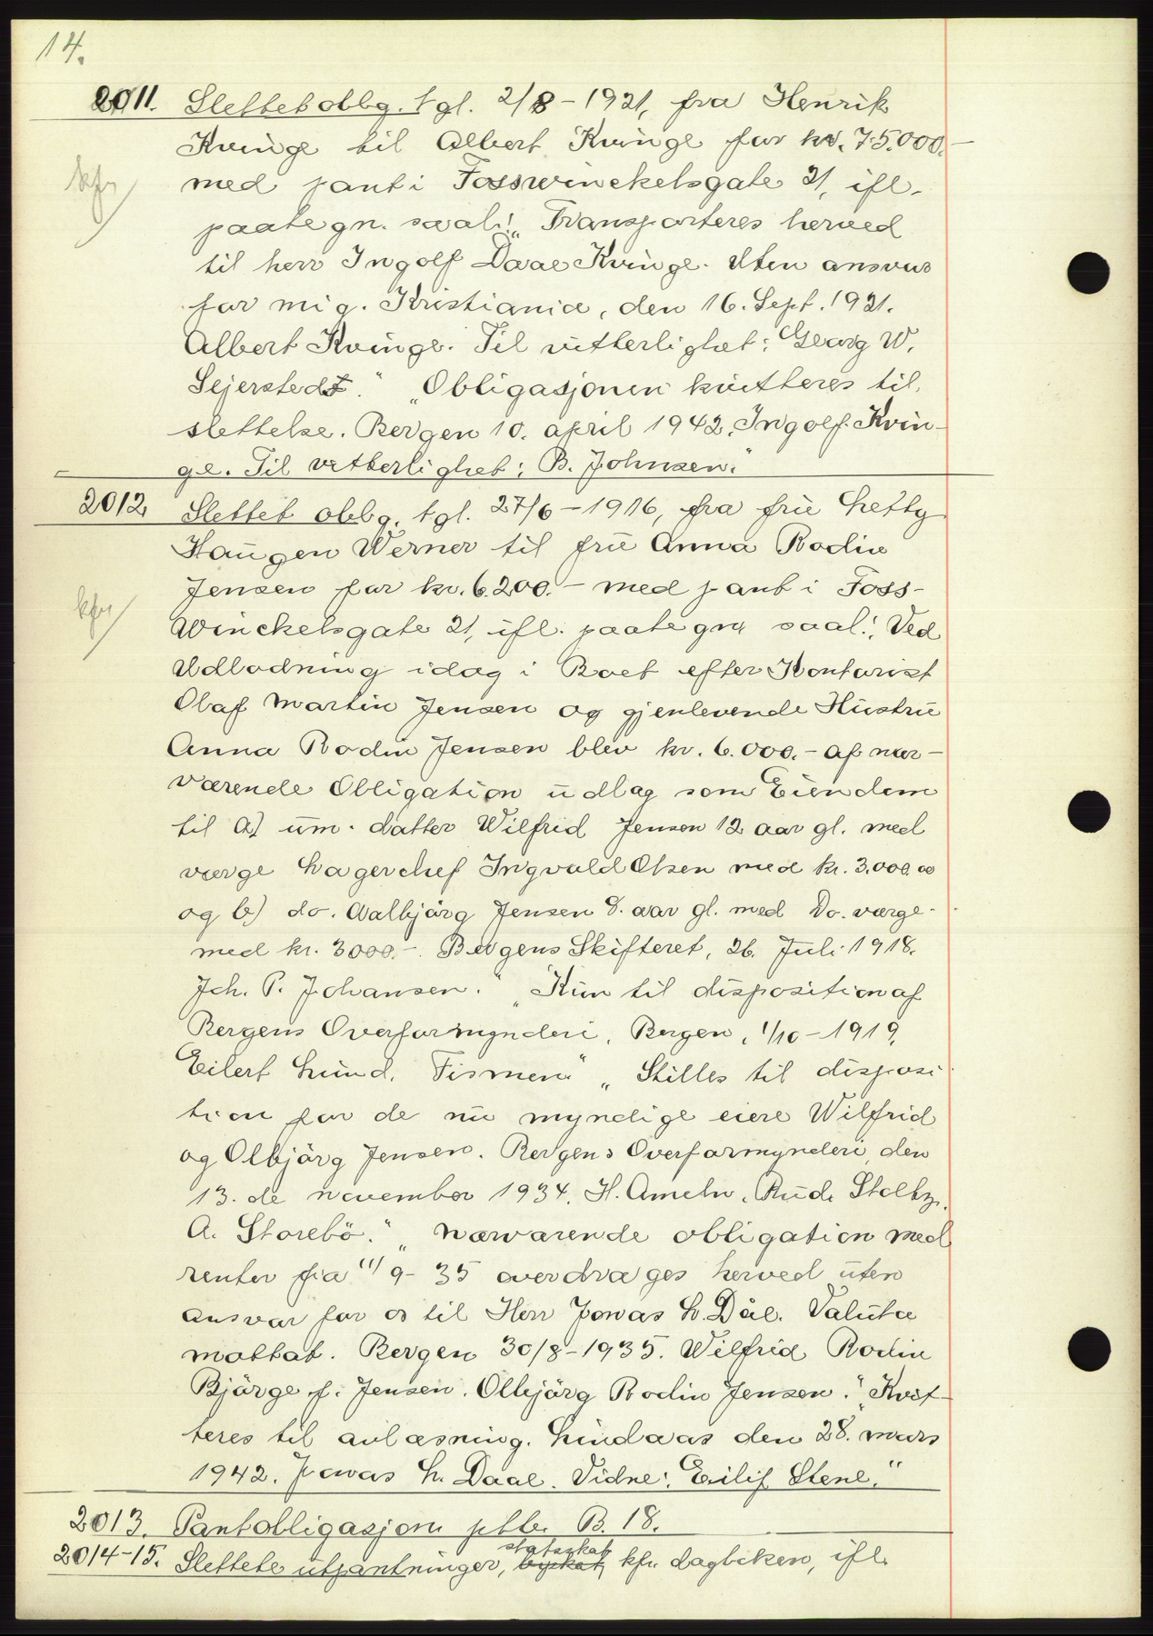 14.
2011. Slettet oblg. tgl. 2/8 - 1921, fra Henrik
Kvinge til Albert Kvinge for kr. 75.000.-
kfr
med pant i Fosswinckelsgate 21, ifl.
paategn. saal.: „Transporteres herved
til herr Ingolf Daae Kvinge. Uten ansvar
for mig. Kristiania, den 16. Sept. 1921.
Albert Kvinge. Til vitterlighet: Georg W.
Sejerstedt." „Obligasjonen kvitteres til
slettelse. Bergen 10. april 1942. Ingolf Kvin-
ge. Til vitterlighet: B. Johnsen."
2012. Slettet oblg. tgl. 27/6 - 1916, fra frü Hetty
Haugen Werner til frü Anna Rodin
Jensen for kr. 6.200.- med pant i Foss-
kfr
Winckelsgate 21, ifl. paategn. saal.: „Ved
Udlodning idag i Boet efter Kontorist
Olaf Martin Jensen og gjenlevende Hustrü
Anna Rodin Jensen blev kr. 6.000.- af nær-
værende Obligation üdlag som Eiendom
til a) üm. datter Wilfrid Jensen 12 aar gl. med
værge Lagerchef Ingvald Olsen med kr. 3.000.00
og b) do. Aalbjörg Jensen 8. aar gl. med Do. værge
med kr. 3000.-. Bergens Skifteret, 26. Juli 1918.
Joh. P. Johansen." „Kün til disposition af
Bergens Overformynderi, Bergen, 1/10 - 1919.
Eilert Lund. Fismen" „Stilles til disposi
tion for de nü myndige eiere Wilfrid
og Olbjörg Jensen. Bergens Overformynderi, den
13. de november 1934. H. Ameln. Rüd. Stoltz.
A. Storebö." „Nærværende obligation med
renter fra 11/9 - 35 overdrages herved üten
ansvar for os til Herr Jonas L. Dåe. Valüta
mottat. Bergen 30/8 - 1935. Wilfrid Rodin
Bjørge f. Jensen. Olbjörg Rodin Jensen." „Kvit-
teres til avlæsning. Lindaas den 28. mars
1942. Jonas L. Daae. Vidne: Eilif Stene."
2013. Pantobligasjon ptb. B. 18.
statsskat
2014-15. Slettete ütpantninger, byskat, kfr. dagboken, ifl.